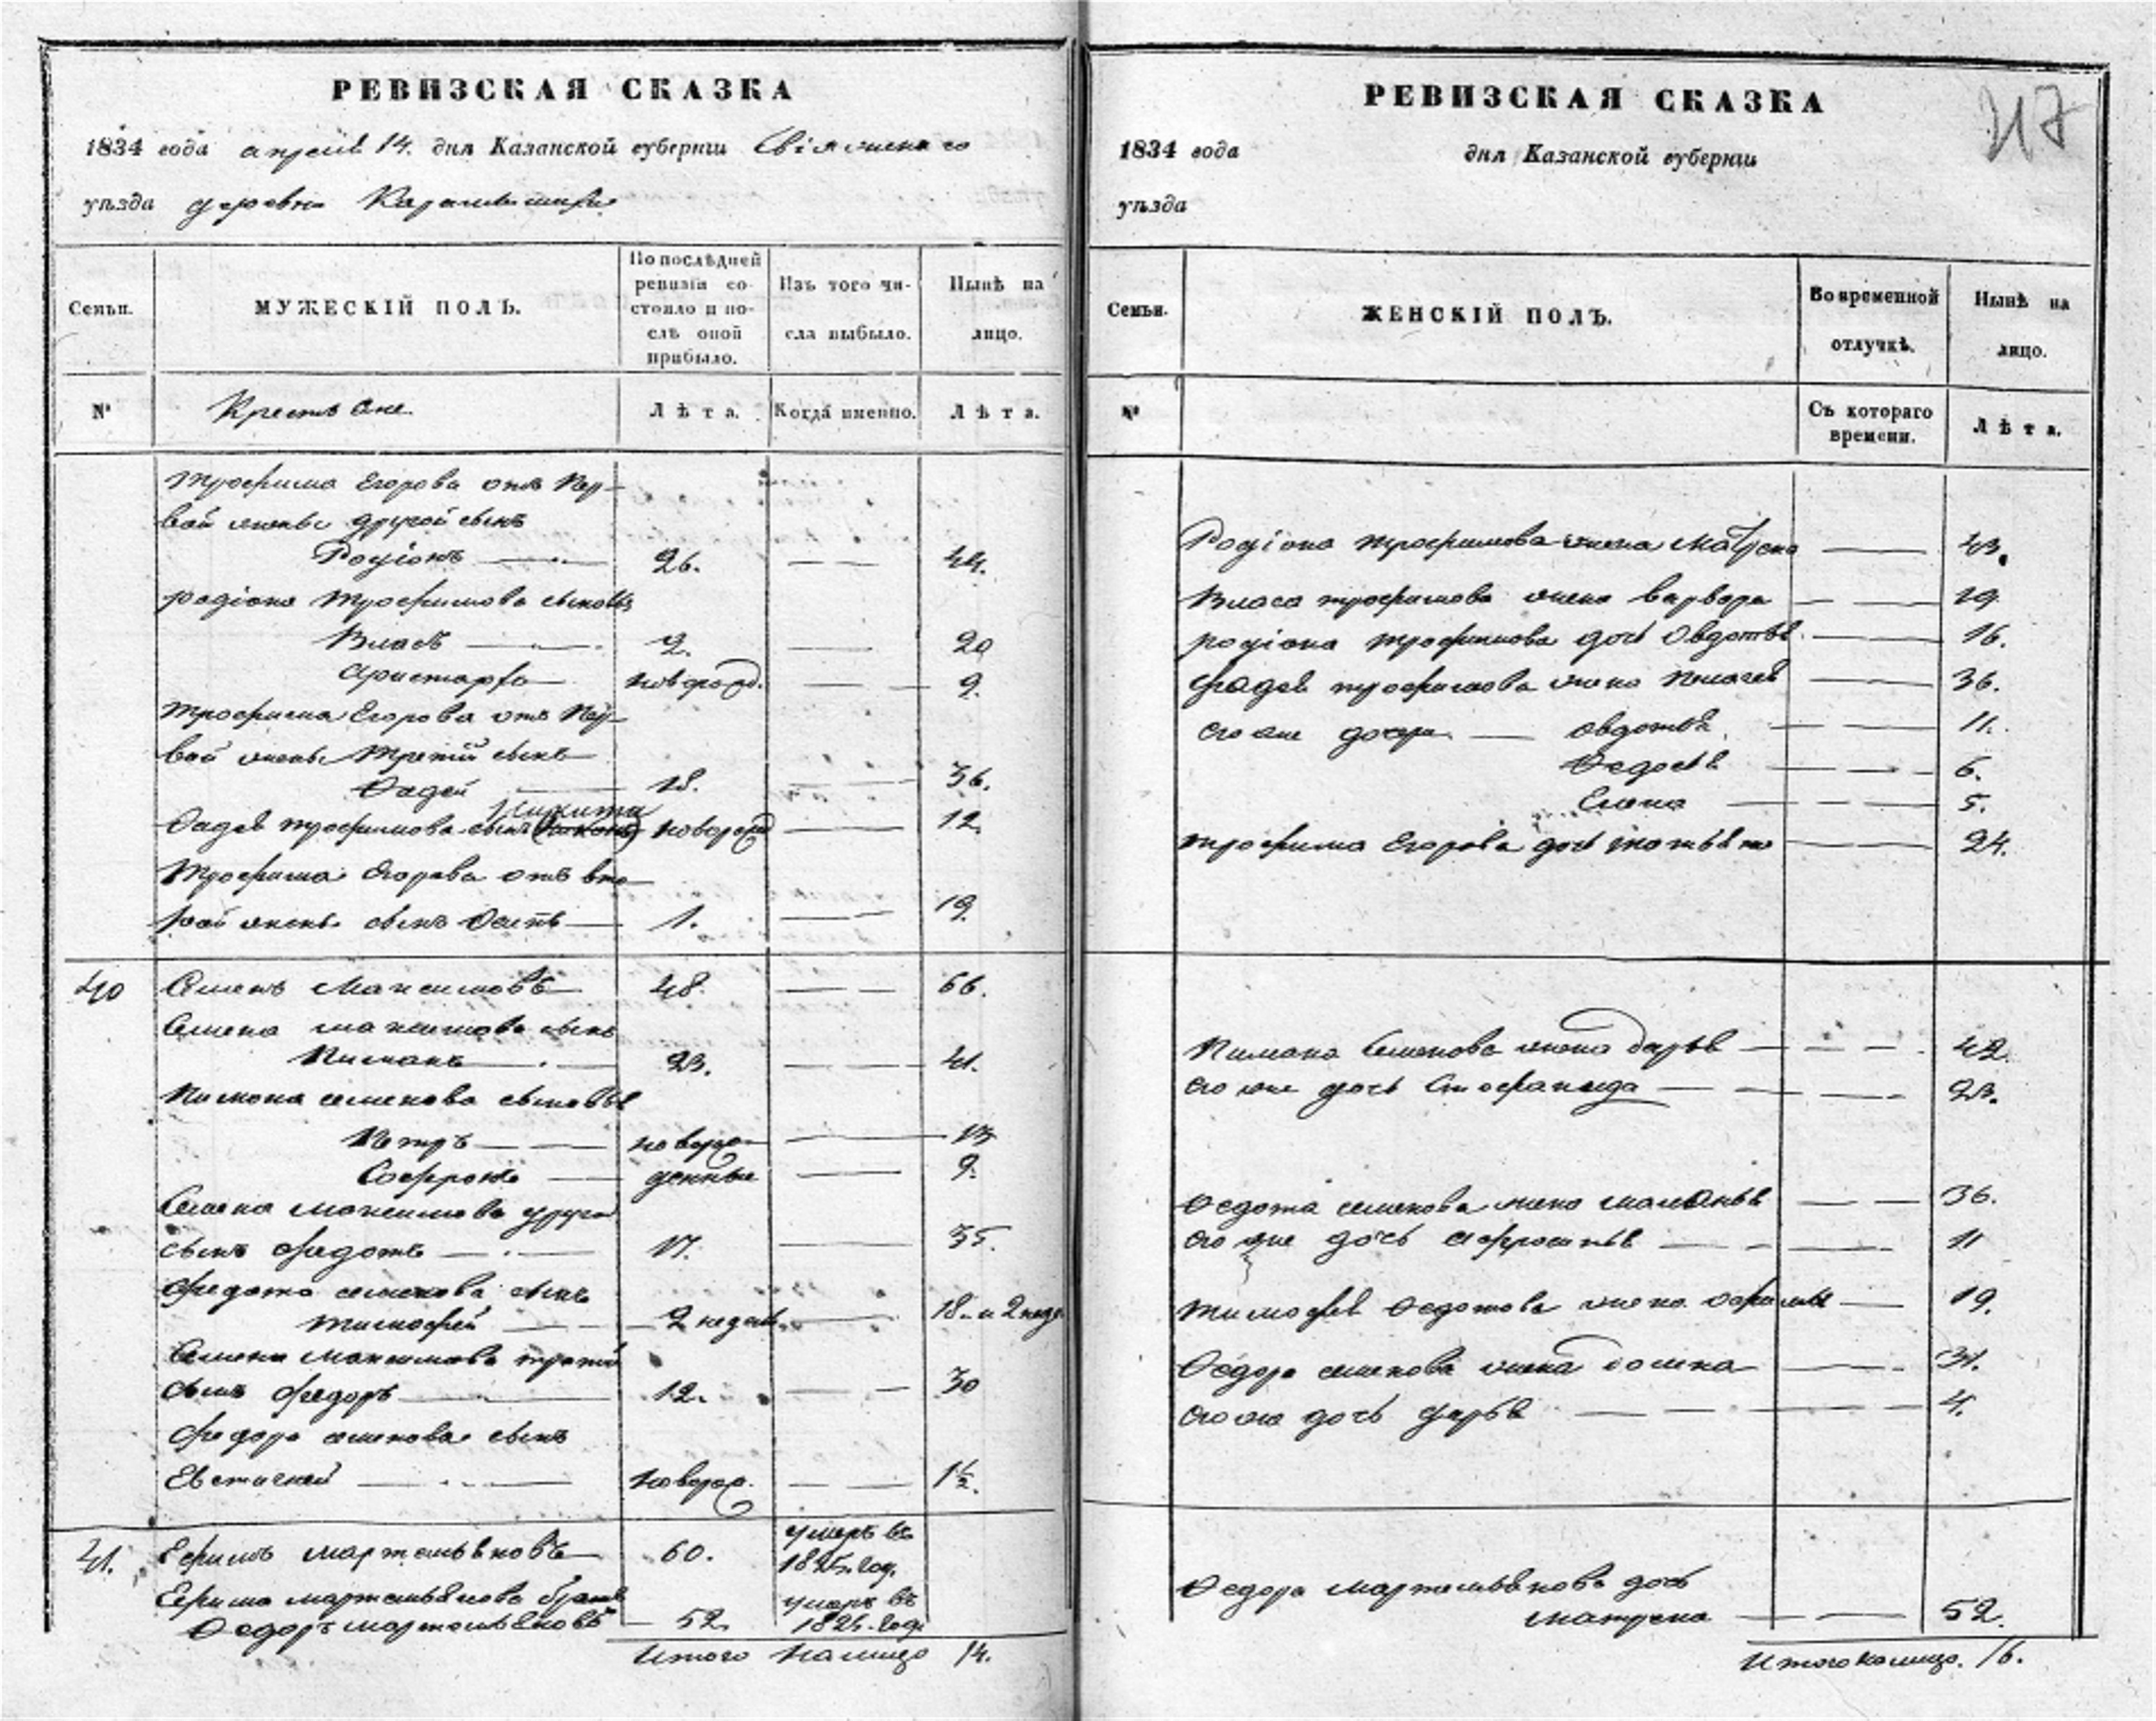 РЕВИЗСКАЯ СКАЗКА
1834 года апреля 14. дня Казанской губерніи Свіяжскаго
уѣзда деревни
Семьи.
МУЖЕСКІЙ ПОЛЪ.
По послѣдней ревизіи состояло и послѣ оной прибыло.
Изъ того числа выбыло.
Нынѣ на лицо.
№
Крестьяне.
Лѣта.
Когда именно.
Лѣта.
Трофима Егорова отъ пер-
вой жены другой сынъ
Родіонъ — 26. — — 44.
Родіона Трофимова сыновья
Власъ — 2. — 20
Аристархъ — новорожд. — — 9.
Трофима Егорова отъ пер-
вой жены третій сынъ
Ѳадей — 18. — — 36.
Никита
Ѳадея Трофимова сынъ новорожд — 12.
Трофима Егорова отъ вто-
рой жены сынъ Осипъ — 1. — — 19.
40 Семенъ Максимовъ — 48. — — 66.
Семена Максимова сынъ
Пиманъ — 23. — — 41.
Пимана Семенова сыновья
Петръ — — новорож — 13
Софронъ — денные — 9.
Семена Максимова другой
сынъ Федотъ — 17. — 35.
Федота Семенова сынъ
Тимофей — 2 недель — 18. и 2 неде
Семена Максимова третій
сынъ Федоръ — 12. — — 30
Федора Семенова сынъ
Евстигней — новорож. — — 1½.
41. Ефимъ Мартемьяновъ — 60. умеръ въ
1825. год.
Ефима Мартемьянова братъ умеръ въ
Ѳедоръ Мартемьяновъ — 52. годѣ
Итого налицо 14.
РЕВИЗСКАЯ СКАЗКА
1834 года дня Казанской губерніи
уѣзда
Семьи.
ЖЕНСКІЙ ПОЛЪ.
Во временной отлучкѣ.
Нынѣ на лицо.
№
Съ котораго времени.
Лѣта.
Родіона Трофимова жена Матрена — 43.
Власа Трофимова жена Варвара — — 19.
Родіона Трофимова дочь Овдотья — — 16.
Фадея Трофимова жена Пелагея — — 36.
Его же дочери — Овдотья — — 11.
Ѳедосья — — — 6.
Елена — — — 5.
Трофима Егорова дочь — — 24.
Пимана Семенова жена Дарья — — — 42.
Его же дочь Стефанида — — — — 23.
Ѳедота Семенова жена Маланья — — 36.
Его же дочь Афросинья — — — 11
Тимофея Ѳедотова жена Офимья — 19.
Ѳедора Семенова жена — — 31.
Его же дочь Дарья — — — — — 4.
Ѳедора Мартемьянова дочь
Матрена — — 52.
Итого налицо. 16.